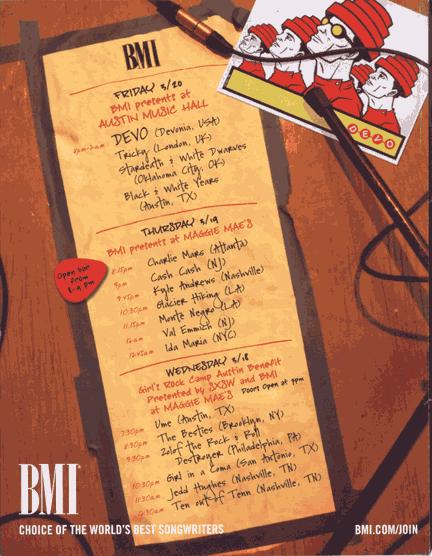 BMI
FRIDAY 3/20
BMI presents at
AUSTIN MUSIC HALL
8pm-2am DEVO (Devonia, USA)
Tricky (London, UK)
Stardeath & White Dwarves
(Oklahoma City, OK)
Black & White Years
(Austin, TX)
DEVO
THURSDAY 3/19
BMI presents at MAGGIE MAE'S
Open bar
from
8-9 pm
8:15pm Charlie Mars (Atlanta)
9pm Cash Cash (NJ)
9:45pm Kyle Andrews (Nashville)
10:30pm Glacier Hiking (LA)
11:15pm Monte Negro (LA)
12am Val Emmich (NJ)
12:45am Ida Maria (NYC)
WEDNESDAY 3/18
Girl's Rock Camp Austin Benefit
Presented by SXSW and BMI
at MAGGIE MAE'S Doors open at 7pm
7:30pm Ume (Austin, TX)
8:30pm The Besties (Brooklyn, NY)
9:30pm Zolof the Rock & Roll
Destroyer (Philadelphia, PA)
10:30pm Girl in a Coma (San Antonio, TX)
11:30pm Jedd Hughes (Nashville, TN)
12:30am Ten out of Tenn (Nashville, TN)
BMI
CHOICE OF THE WORLD'S BEST SONGWRITERS
BMI.COM/JOIN